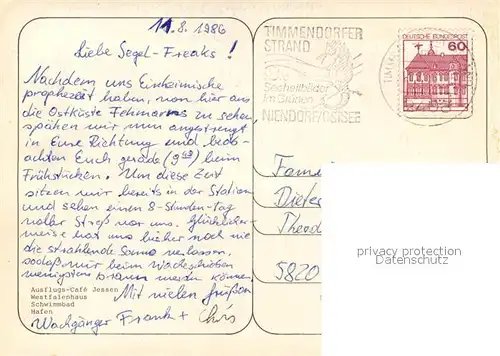 11.8.1986
Liebe Segel-Freaks!
Nachdem uns Einheimische
prophezeit haben, von hier aus
die Ostküste Fehmarns zu sehen
spähen wir nun angestrengt
in Eure Richtung und beob-
achten Euch gerade (9 Uhr) beim
Frühstücken. Um diese Zeit
sitzen wir bereits in der Station
und sehen einen 8-Stunden-Tag
voller Streß vor uns. Glücklicher-
weise hat uns bisher noch nie
die strahlende Sonne verlassen,
sodaß wir beim Wacheschieben
wenigstens braun werden können.
Mit vielen Grüßen
Wachgänger Frank + Chris
Ausflugs-Café Jessen
Westfalenhaus
Schwimmbad
Hafen
TIMMENDORFER
STRAND
Seeheilbäder
im Grünen
NIENDORF/OSTSEE
DEUTSCHE BUNDESPOST
60
Fam
Dieter
Theod
5820
privacy protection
Datenschutz